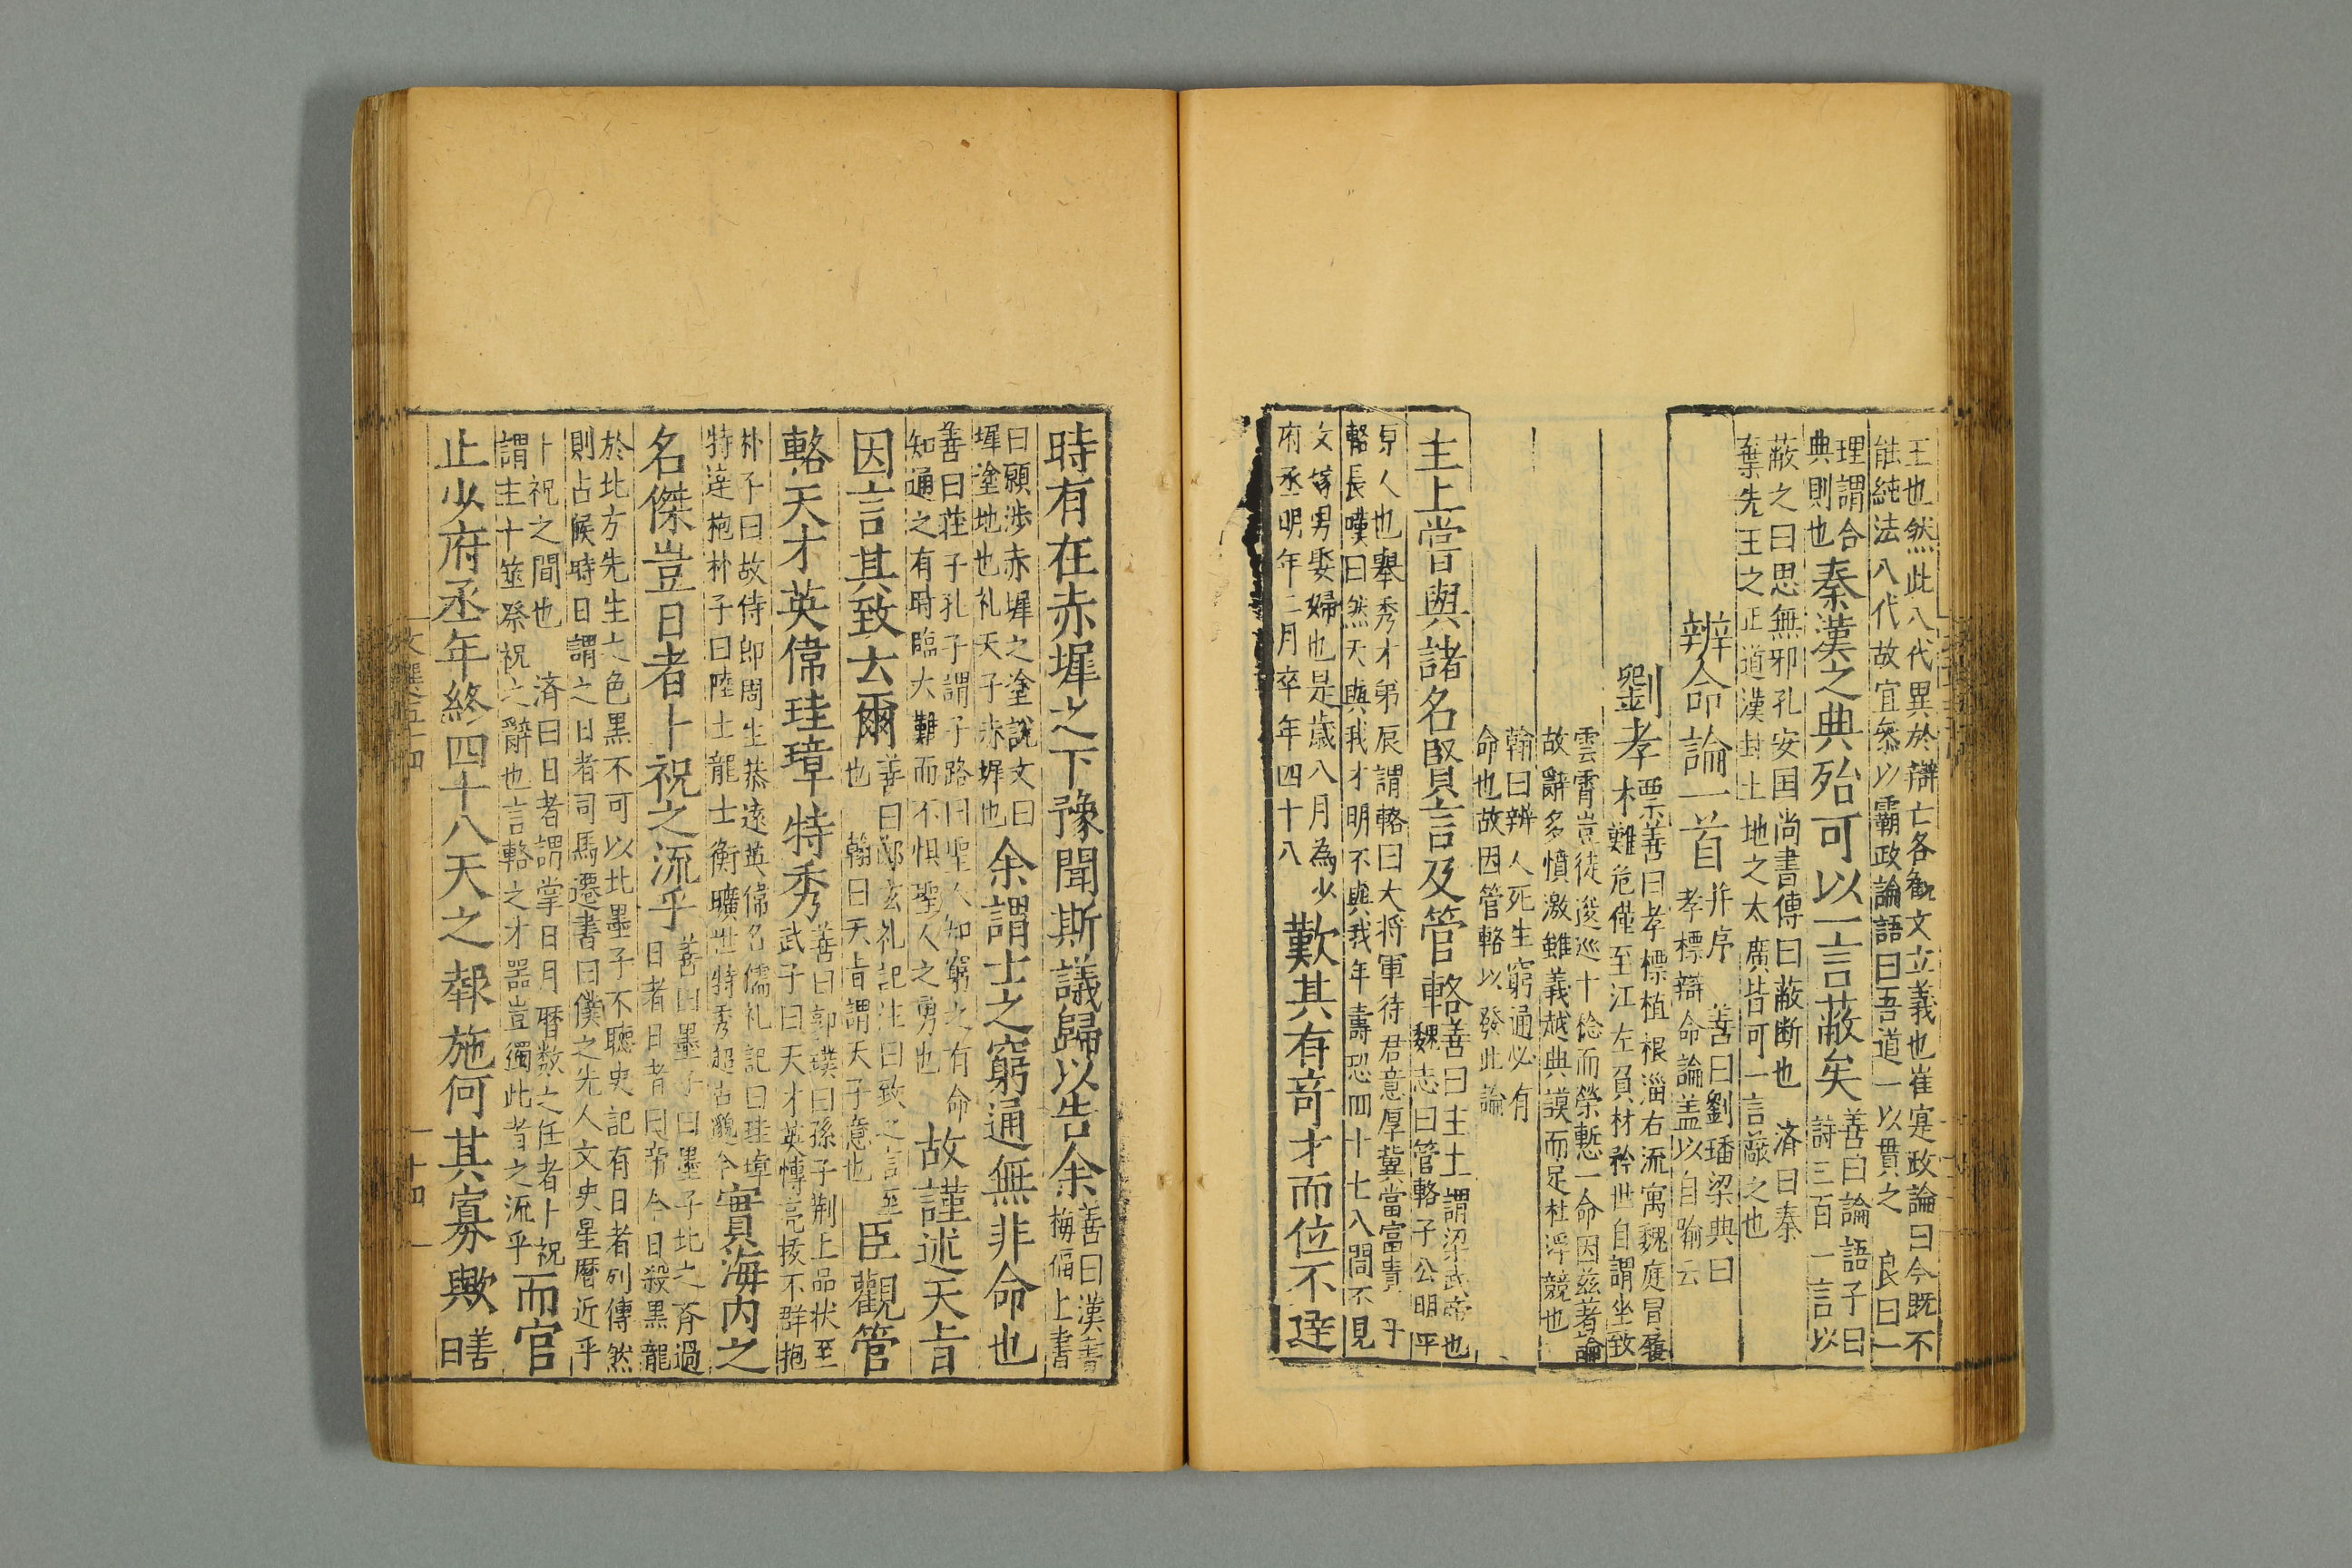 王也然此八代異於辯亡各觀文立義也崔寔政論曰今既不
能純法八代故宜叅以霸政論語曰吾道一以貫之　良曰一
理謂合
典則也
秦漢之典殆可以一言蔽矣
善曰論語子曰
詩三百一言以
蔽之曰思無邪孔安国尚書傳曰蔽断也　済曰秦
棄先王之正道漢封土地之太廣皆可一言蔽之也
辨命論一首
并序　善曰劉璠梁典曰
孝標辯命論盖以自喻云
劉孝標
善曰孝標植根淄右流寓魏庭冒履
艱危僅至江左負材矜世自謂坐致
雲霄豈徒逡巡十稔而榮慙一命因兹著論
故辭多憤激雖義越典謨而足杜浮競也
翰曰辨人死生窮通必有
命也故因管輅以發此論
主上嘗與諸名賢言及管輅
善曰主上謂梁武帝也
魏志曰管輅子公明平
原人也舉秀才弟辰謂輅曰大将軍待君意厚冀當富貴乎
輅長嘆曰然天與我才明不與我年壽恐四十七八間不見
女嫁男娶婦也是歲八月為少
府丞明年二月卒年四十八
歎其有奇才而位不達
時有在赤墀之下豫聞斯議歸以告余
善曰漢書
梅福上書
曰願涉赤墀之塗說文曰
墀塗地也礼天子赤墀也
余謂士之窮通無非命也
善曰莊子孔子謂子路曰聖人知窮之有命
知通之有時臨大難而不惧聖人之勇也
故謹述天旨
因言其致云爾
善曰鄭玄礼記注曰致之言至
也　翰曰天旨謂天子意也
臣觀管
輅天才英偉珪璋特秀
善曰郭璞曰孫子荆上品状至
武子曰天才英博亮拔不群抱
朴子曰故侍郎周生恭遠英偉名儒礼記曰珪璋
特達抱朴子曰陸士龍士衡曠世特秀超古邈今
實海内之
名傑豈日者卜祝之流乎
善曰墨子曰墨子北之齊過
日者日者曰帝今日殺黑龍
於北方先生之色黑不可以北墨子不聽史記有日者列傳然
則占候時日謂之日者司馬遷書曰僕之先人文史星暦近乎
卜祝之間也　済曰日者謂掌日月暦数之任者卜祝
謂主卜筮祭祝之辭也言輅之才器豈獨此者之流乎
而官
止少府丞年終四十八天之報施何其寡歟
善
曰
文選卷五十四
十四